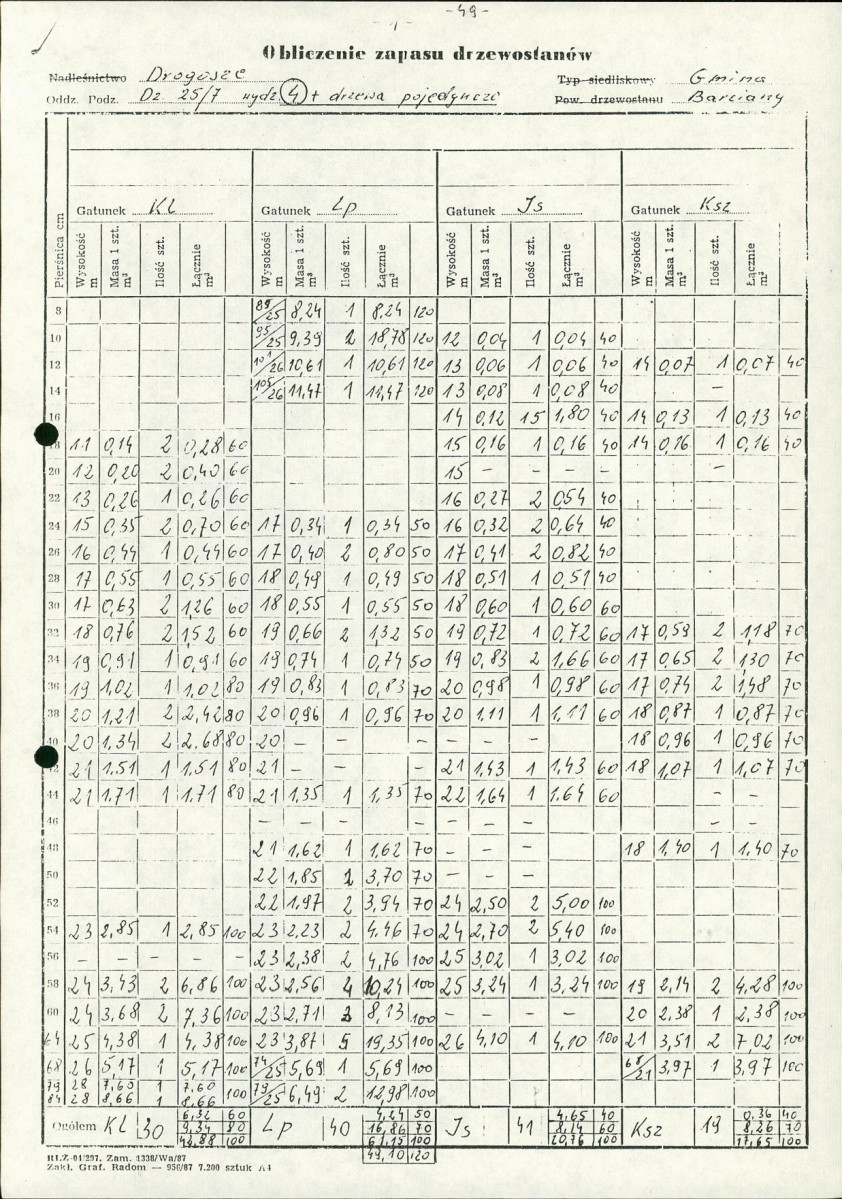 - 49 -
- 1 -
Obliczenie zapasu drzewostanów
Nadleśnictwo Drogosze Typ siedliskowy Gmina
Oddz. Podz. Dz. 25/7 wydz. 4 + drzewa pojedyncze Pow. drzewostanu Barciany
Gatunek Kl Gatunek Lp Gatunek Js Gatunek Ksz
Pierśnica cm Wysokość m Masa 1 szt. m³ Ilość szt. Łącznie m³ Wysokość m Masa 1 szt. m³ Ilość szt. Łącznie m³ Wysokość m Masa 1 szt. m³ Ilość szt. Łącznie m³ Wysokość m Masa 1 szt. m³ Ilość szt. Łącznie m³
8 89/25 8,24 1 8,24 120
10 95/25 9,39 2 18,78 120 12 0,04 1 0,04 40
12 101/26 10,61 1 10,61 120 13 0,06 1 0,06 40 14 0,07 1 0,07 40
14 105/26 11,47 1 11,47 120 13 0,08 1 0,08 40 –
16 14 0,12 15 1,80 40 14 0,13 1 0,13 40
18 11 0,14 2 0,28 60 15 0,16 1 0,16 40 14 0,16 1 0,16 40
20 12 0,20 2 0,40 60 15 – – – –
22 13 0,26 1 0,26 60 16 0,27 2 0,54 40
24 15 0,35 2 0,70 60 17 0,34 1 0,34 50 16 0,32 2 0,64 40
26 16 0,44 1 0,44 60 17 0,40 2 0,80 50 17 0,41 2 0,82 40
28 17 0,55 1 0,55 60 18 0,49 1 0,49 50 18 0,51 1 0,51 40
30 17 0,63 2 1,26 60 18 0,55 1 0,55 50 18 0,60 1 0,60 60
32 18 0,76 2 1,52 60 19 0,66 2 1,32 50 19 0,72 1 0,72 60 17 0,59 2 1,18 70
34 19 0,91 1 0,91 60 19 0,74 1 0,74 50 19 0,83 2 1,66 60 17 0,65 2 1,30 70
36 19 1,02 1 1,02 80 19 0,83 1 0,83 70 20 0,98 1 0,98 60 17 0,74 2 1,48 70
38 20 1,21 2 2,42 80 20 0,96 1 0,96 70 20 1,11 1 1,11 60 18 0,87 1 0,87 70
40 20 1,34 2 2.68 80 20 – – – – – – 18 0,96 1 0,96 70
42 21 1.51 1 1.51 80 21 – – – 21 1,43 1 1.43 60 18 1,07 1 1,07 70
44 21 1.71 1 1.71 80 21 1,35 1 1,35 70 22 1,64 1 1.64 60 – –
46 – – – – – – – –
48 21 1,62 1 1,62 70 – – – 18 1,40 1 1,40 70
50 22 1,85 2 3,70 70 – – –
52 22 1,97 2 3,94 70 24 2,50 2 5,00 100
54 23 2,85 1 2,85 100 23 2,23 2 4.46 70 24 2,70 2 5,40 100
56 – – – – – 23 2,38 2 4,76 100 25 3,02 1 3,02 100
58 24 3,43 2 6,86 100 23 2,56 4 10,24 100 25 3,24 1 3,24 100 19 2,14 2 4,28 100
60 24 3,68 2 7,36 100 23 2,71 3 8,13 100 – – – – 20 2.38 1 2,38 100
64 25 4,38 1 4,38 100 23 3,87 5 19,35 100 26 4,10 1 4,10 100 21 3,51 2 7,02 100
68 26 5,17 1 5,17 100 74/25 5,69 1 5,69 100 68/21 3,97 1 3,97 100
79 28 7,60 1 7.60 79/25 6,49 2 12,98 100
84 28 8,66 1 8,66 100
Ogółem Kl 30 6,32 60 Lp 40 4,24 50 Js 41 4,65 40 Ksz 19 0,36 40
9,34 80 16,86 70 8,14 60 8,26 70
42,88 100 61,15 100 20,76 100 17,65 100
49,10 120
RLZ-04/297. Zam. 1338/Wa/87
Zakł. Graf. Radom — 956/87 7.200 sztuk A4